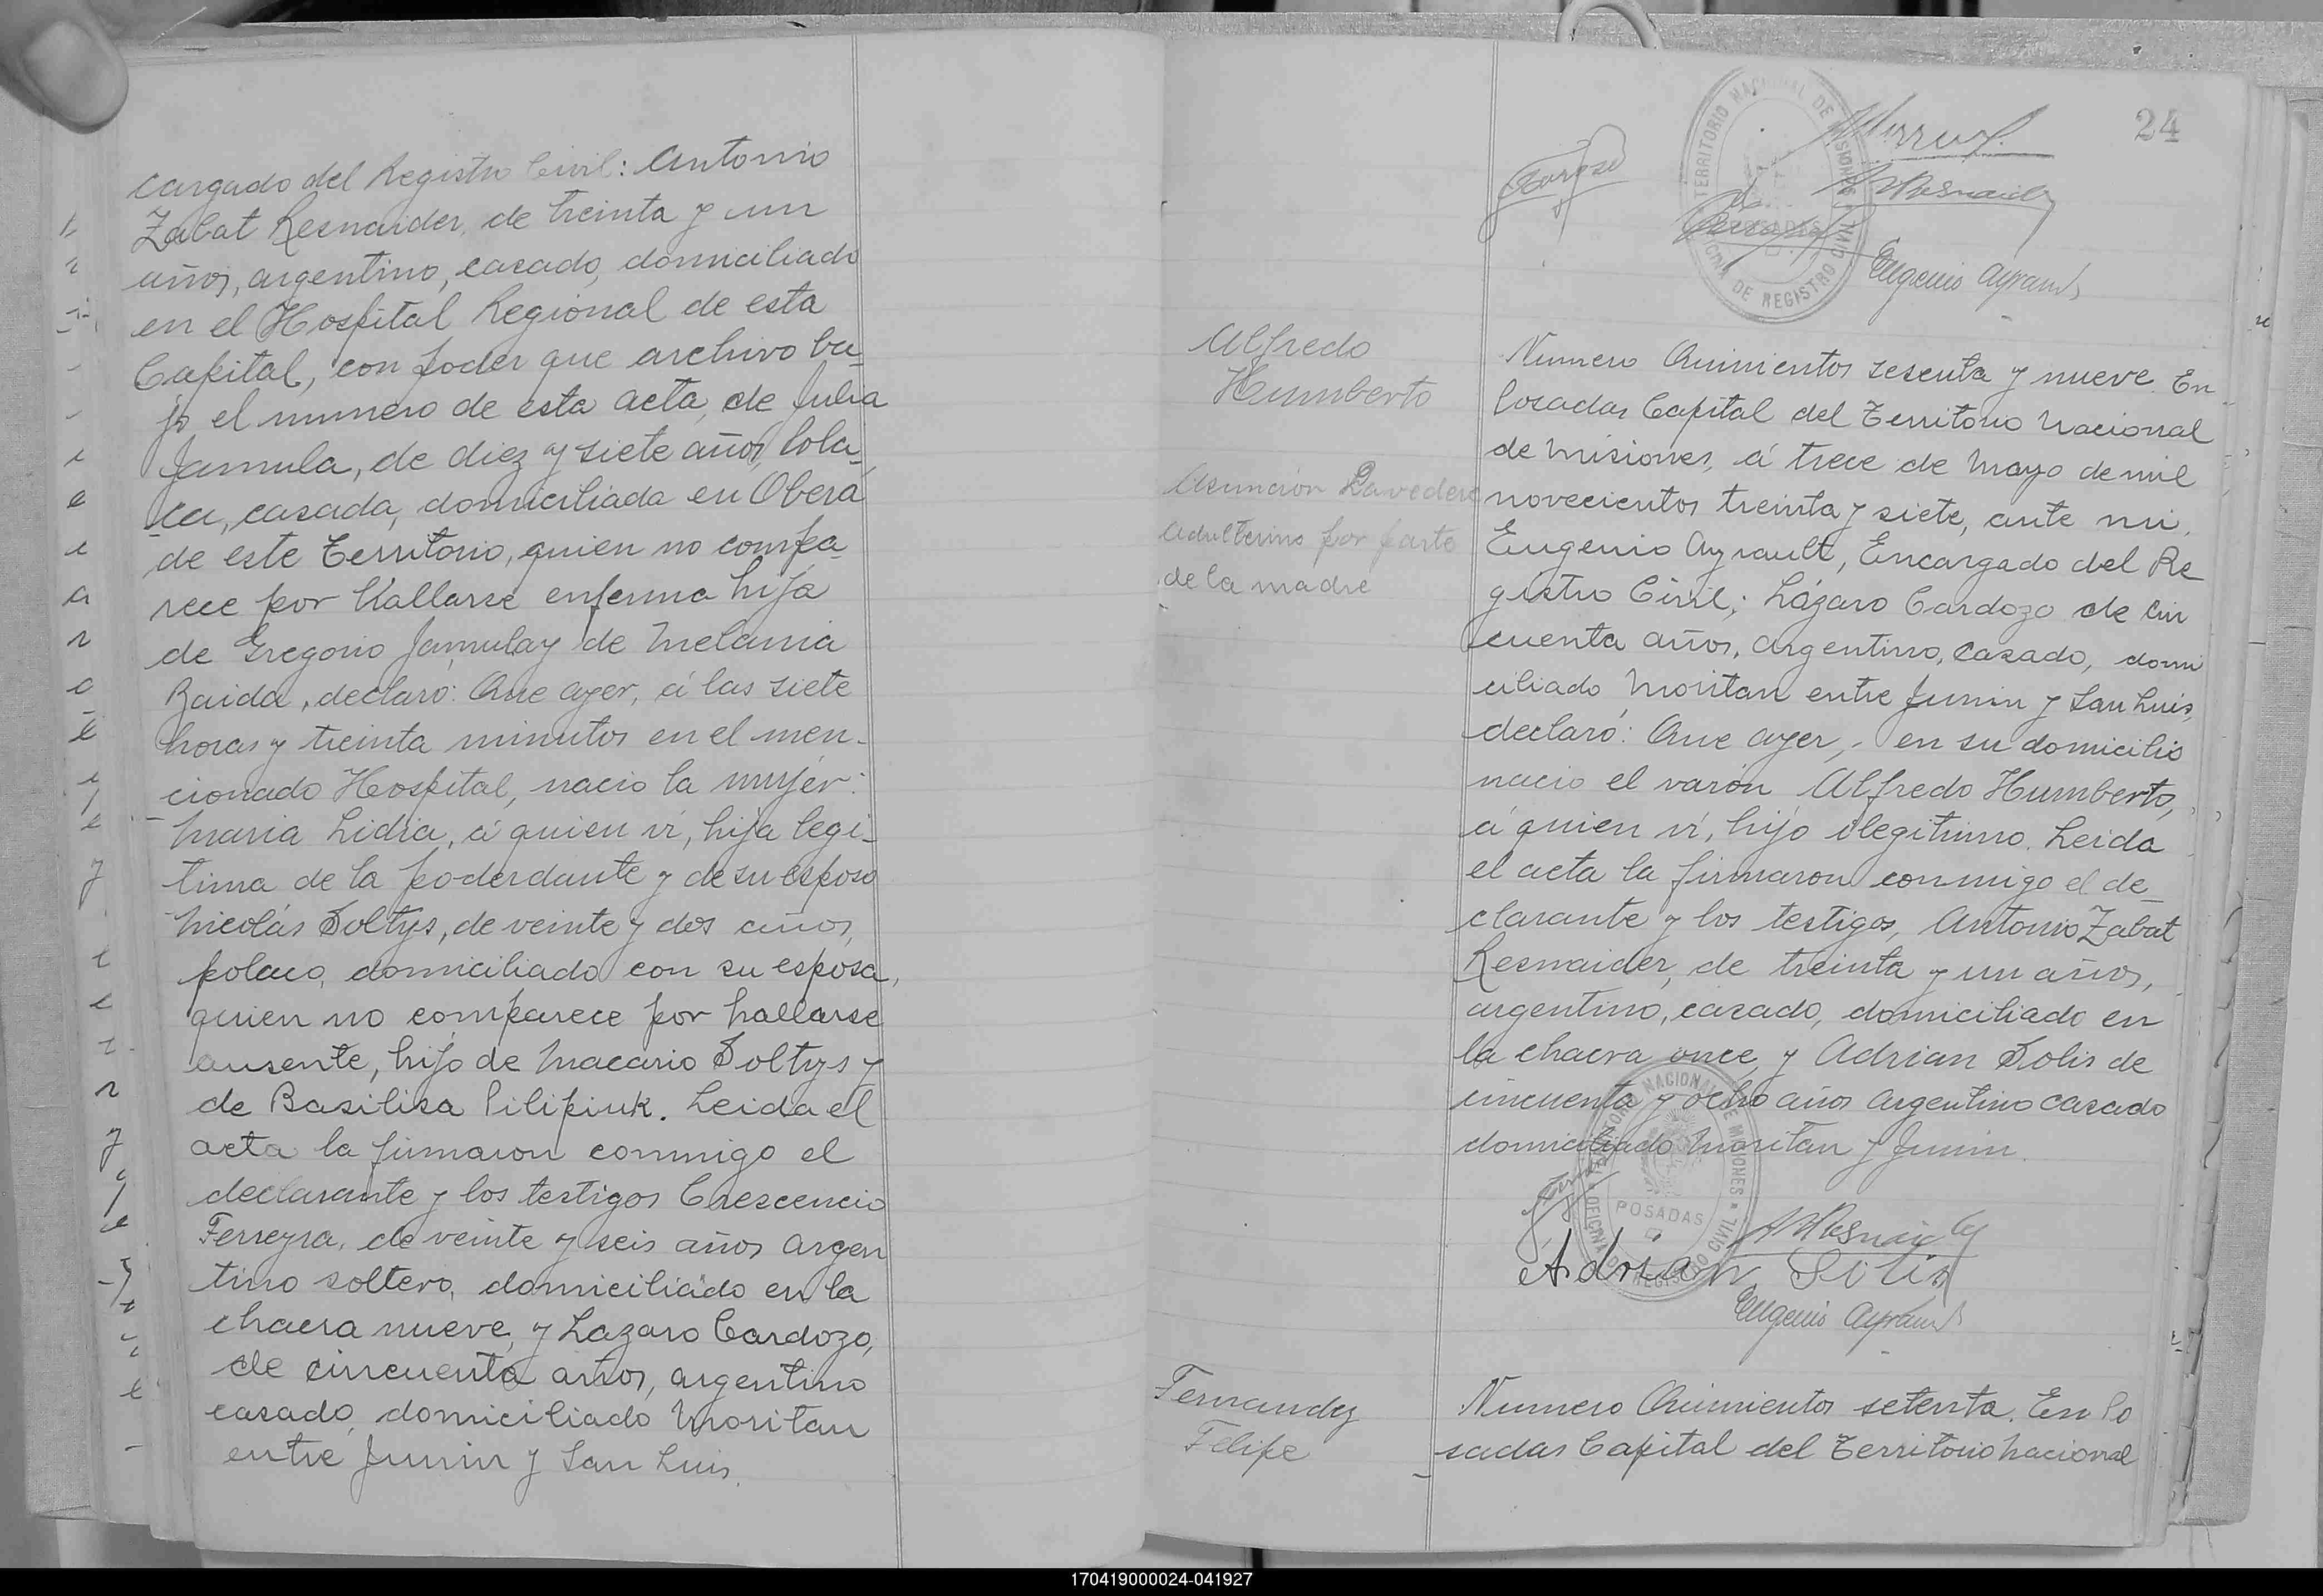 cargado del Registro Civil: Antonio
Zabat Resnaider, de treinta y un
años, argentino, casado, domiciliado
en el Hospital Regional de esta
Capital, con poder que archivo ba_
jo el numero de esta acta, de Julia
Jamula, de diez y siete años, pola_
ca, casada, domiciliada en Oberá
de este Territorio, quien no compa_
rece por hallarse enferma hija
de Gregorio Jamula y de Melania
Baida, declaró: Que ayer, á las siete
horas y treinta minutos en el men-
cionado Hospital, nacio la mujer:
Maria Lidia, á quien ví, hija legi_
tima de la poderdante y de su esposo
Nicolás Soltys, de veinte y dos años,
polaco, domiciliado con su esposa,
quien no comparece por hallarse
ausente, hijo de Macario Soltys y
de Basilisa Pilipiuk. Leida el
acta la firmaron conmigo el
declarante y los testigos Crescencio
Ferreyra, de veinte y seis años argen
tino soltero, domiciliado en la
chacra nueve, y Lazaro Cardozo,
de cincuenta años, argentino
casado, domiciliado Moritan
entre Junin y San Luis.
24
TERRITORIO NACIONAL DE MISIONES
POSADAS
OFICINA DE REGISTRO CIVIL
Eugenio Ayrault
Alfredo
Humberto
Asunción Lavedere
adulterino por parte
de la madre
Numero Quinientos sesenta y nueve. En
Posadas Capital del Territorio Nacional
de Misiones, á trece de Mayo de mil
novecientos treinta y siete, ante mi,
Eugenio Ayrault, Encargado del Re
gistro Civil; Lázaro Cardozo de cin
cuenta años, argentino, casado, domi
ciliado Moritan entre Junin y San Luis,
declaró: Que ayer, - en su domicilio
nacio el varón Alfredo Humberto,
á quien ví, hijo ilegitimo. Leida
el acta la firmaron conmigo el de_
clarante y los testigos, Antonio Zabat
Resnaider, de treinta y un años,
argentino, casado, domiciliado en
la chacra once, y Adrian Solis de
cincuenta y ocho años argentino casado
domiciliado Moritan y Junin.
TERRITORIO NACIONAL DE MISIONES
POSADAS
OFICINA DE REGISTRO CIVIL
Adrian Solis
Eugenio Ayrault
Fernandez
Felipe
Numero Quinientos setenta. En Po
sadas Capital del Territorio Nacional
170419000024-041927